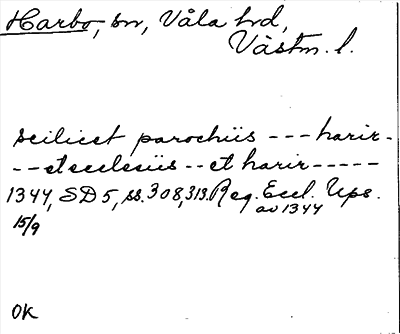 Harbo, sn, Våla hd,
Västm. l.
scilicet parochiis --- harir-
--et ecclesiis -- et harir-----
1344, SD 5, ss. 308, 313. Reg. Eccl. Ups.
av 1344
15/9
OK